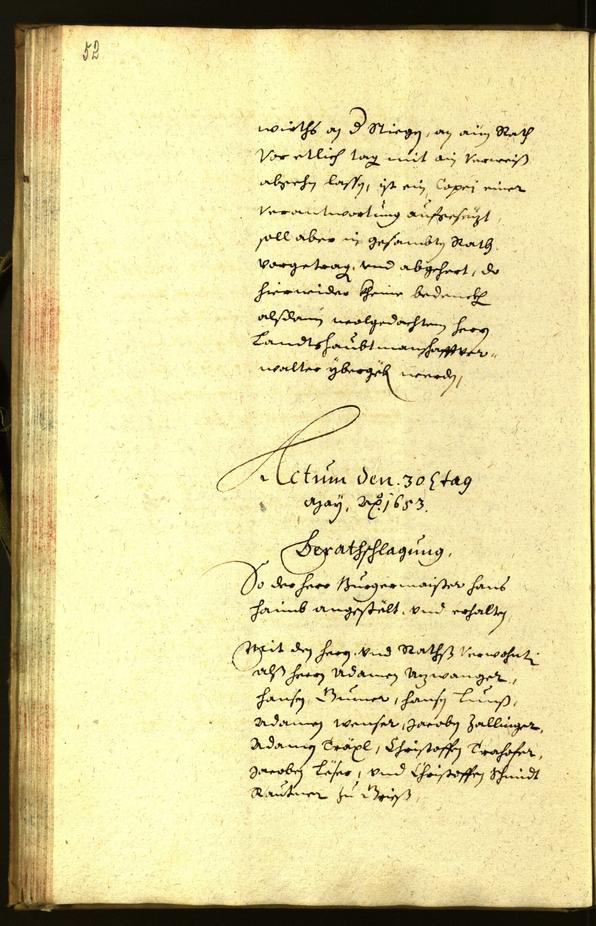 52
wirths an d Stiegen, an ain Rath
vor etlich tag mit ain verweiß
abgehn lassen, ist ein Copei einer
verantwortung aufgesezt,
soll aber in gesambten Rath
vorgetragen, vnd abgehert, da
hierwider kheine bedenckh
alßdann wolgedachtem herrn
Landtshaubtmanschafftver-
walter ybergeben werden,
Actum den 30 tag
May, 1653.
Berathschlagung,
So der herr Burgermaister hans
haimb angestelt, vnd erhalten,
Mit den herrn, vnd Raths verwohnten
alß herrn Adamen
hansen, hansen
Adamen Wenser, Jacoben Zallinger,
Adamen Träxl, Christoffen Trahofer,
Jacoben, vnd Christoffen Schmidt
zu